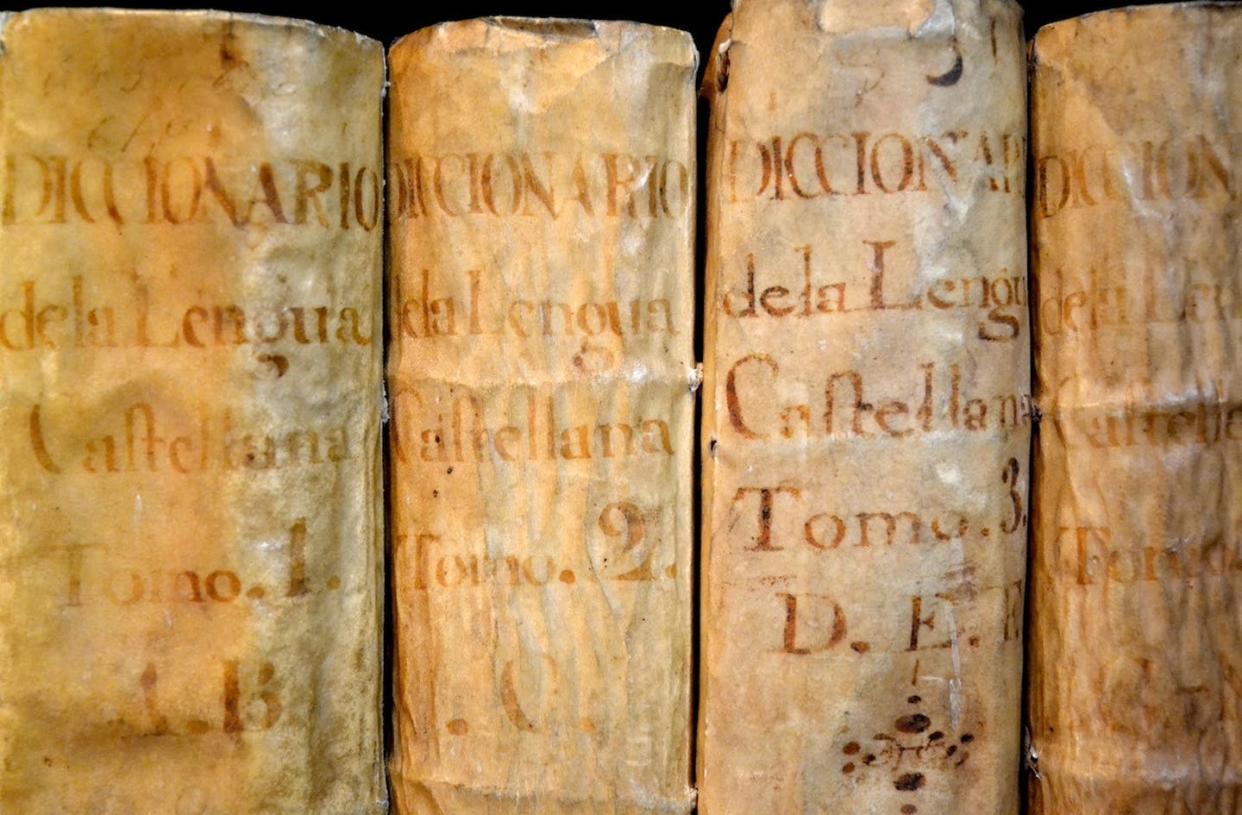 DICCIONARIO
dela Lengua
Castellana
Tomo. 1.
A.B
DICCIONARIO
d la Lengua
Castellana
Tomo. 2.
. C .
DICCIONAR
dela Lengu
Castellana
Tomo. 3.
D. E. F
DICCION
dela Len
Castella
Tomo.
G